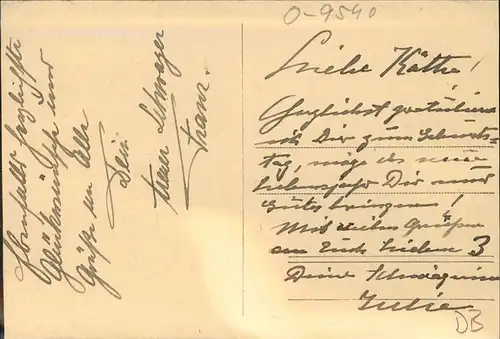 O-9540
Liebe Käthe!
Herzlichst gratuliere
ich Dir zum Geburts-
tag, möge das neue
Lebensjahr Dir nur
Gutes bringen!
Mit vielen Grüßen
an Euch lieben 3
Deine Schwägerin
Julie
DB
Ebenfalls herzlichste
Glückwünsche und
Grüße an Alle
Dein
treuer Schwager
Franz.